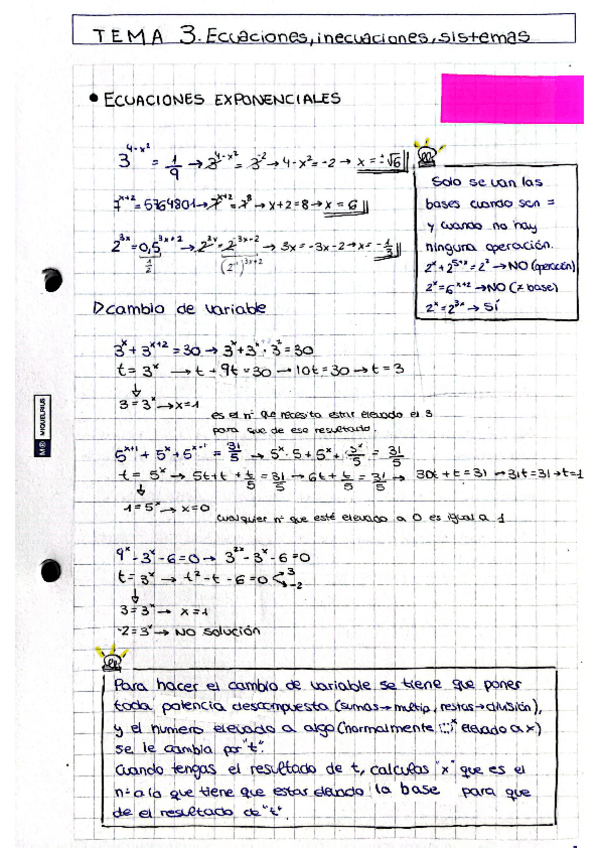 TEMA 3. Ecuaciones, inecuaciones, sistemas
• ECUACIONES EXPONENCIALES
3^(4-x²) = 1/9 → 3^(4-x²) = 3^(-2) → 4-x² = -2 → x = ±√6
7^(x+2) = 5764801 → 7^(x+2) = 7^8 → x+2 = 8 → x = 6
2^(3x) = 0,5^(3x+2) → 2^(3x) = 2^(-3x-2) → 3x = -3x-2 → x = -1/3
1/2
Solo se van las
bases cuando son =
y cuando no hay
ninguna operación.
2^x + 2^(5+x) = 2² → NO (operación)
2^x = 6^(x+2) → NO (≠ base)
2^x = 2^(3x) → SÍ
▷ cambio de variable
3^x + 3^(x+2) = 30 → 3^x + 3^x · 3² = 30
t = 3^x → t + 9t = 30 → 10t = 30 → t = 3
3 = 3^x → x = 1
es el nº que necesita estar elevado el 3
para que de ese resultado.
5^(x+1) + 5^x + 5^(x-1) = 31/5 → 5^x · 5 + 5^x + 5^x/5 = 31/5
t = 5^x → 5t + t + t/5 = 31/5 → 6t + t/5 = 31/5 → 30t + t = 31 → 31t = 31 → t = 1
1 = 5^x → x = 0
cualquier nº que esté elevado a 0 es igual a 1
9^x - 3^x - 6 = 0 → 3^(2x) - 3^x - 6 = 0
t = 3^x → t² - t - 6 = 0 < 3
-2
3 = 3^x → x = 1
-2 = 3^x → NO solución
Para hacer el cambio de variable se tiene que poner
toda potencia descompuesta (sumas → multip, restas → división),
y el numero elevado a algo (normalmente ⬚^x elevado a x)
se le cambia por "t".
Cuando tengas el resultado de t, calculas "x" que es el
nº a la que tiene que estar elevado la base para que
de el resultado de "t".
MIQUELRIUS